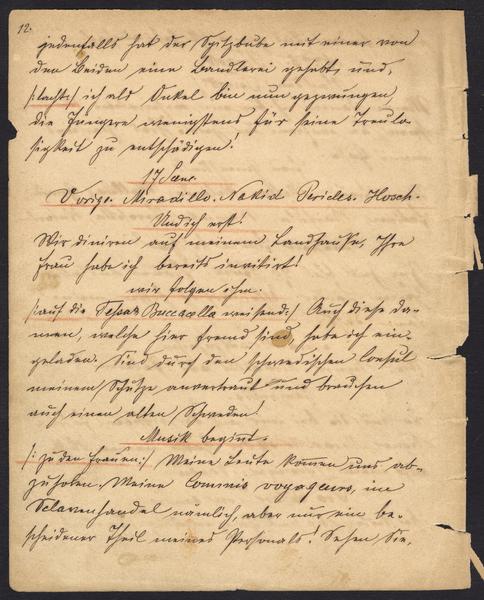 12.
jedenfalls hat der Spitzbube mit einer von
den Beiden eine Bandlerei gehabt, und,
/:lacht:/ ich als Onkel bin nun gezwungen,
die Jüngere wenigstens für seine Treulo-
sigkeit zu entschädigen!
17 Scene.
Vorige. Miradillo. Nakid Pericles. Hosch.
Und ich erst!
Wir diniren auf meinem Landhause, Ihre
Frau habe ich bereits invitirt!
wir folgen ihm.
/:auf die Buccacella weisend:/ Auch diese Da-
men, welche hier fremd sind, habe ich ein-
geladen. Sind durch den schwedischen Consul
meinem Schutze anvertraut und brauchen
auch einen alten Schweden!
Musik beginnt.
/: zu den Frauen:/ Meine Leute kommen uns ab-
zuholen. Meine Commis voyageurs, im
Sclavenhandel nämlich, aber nur ein be-
scheidener Theil meines Personals! Sehen Sie,